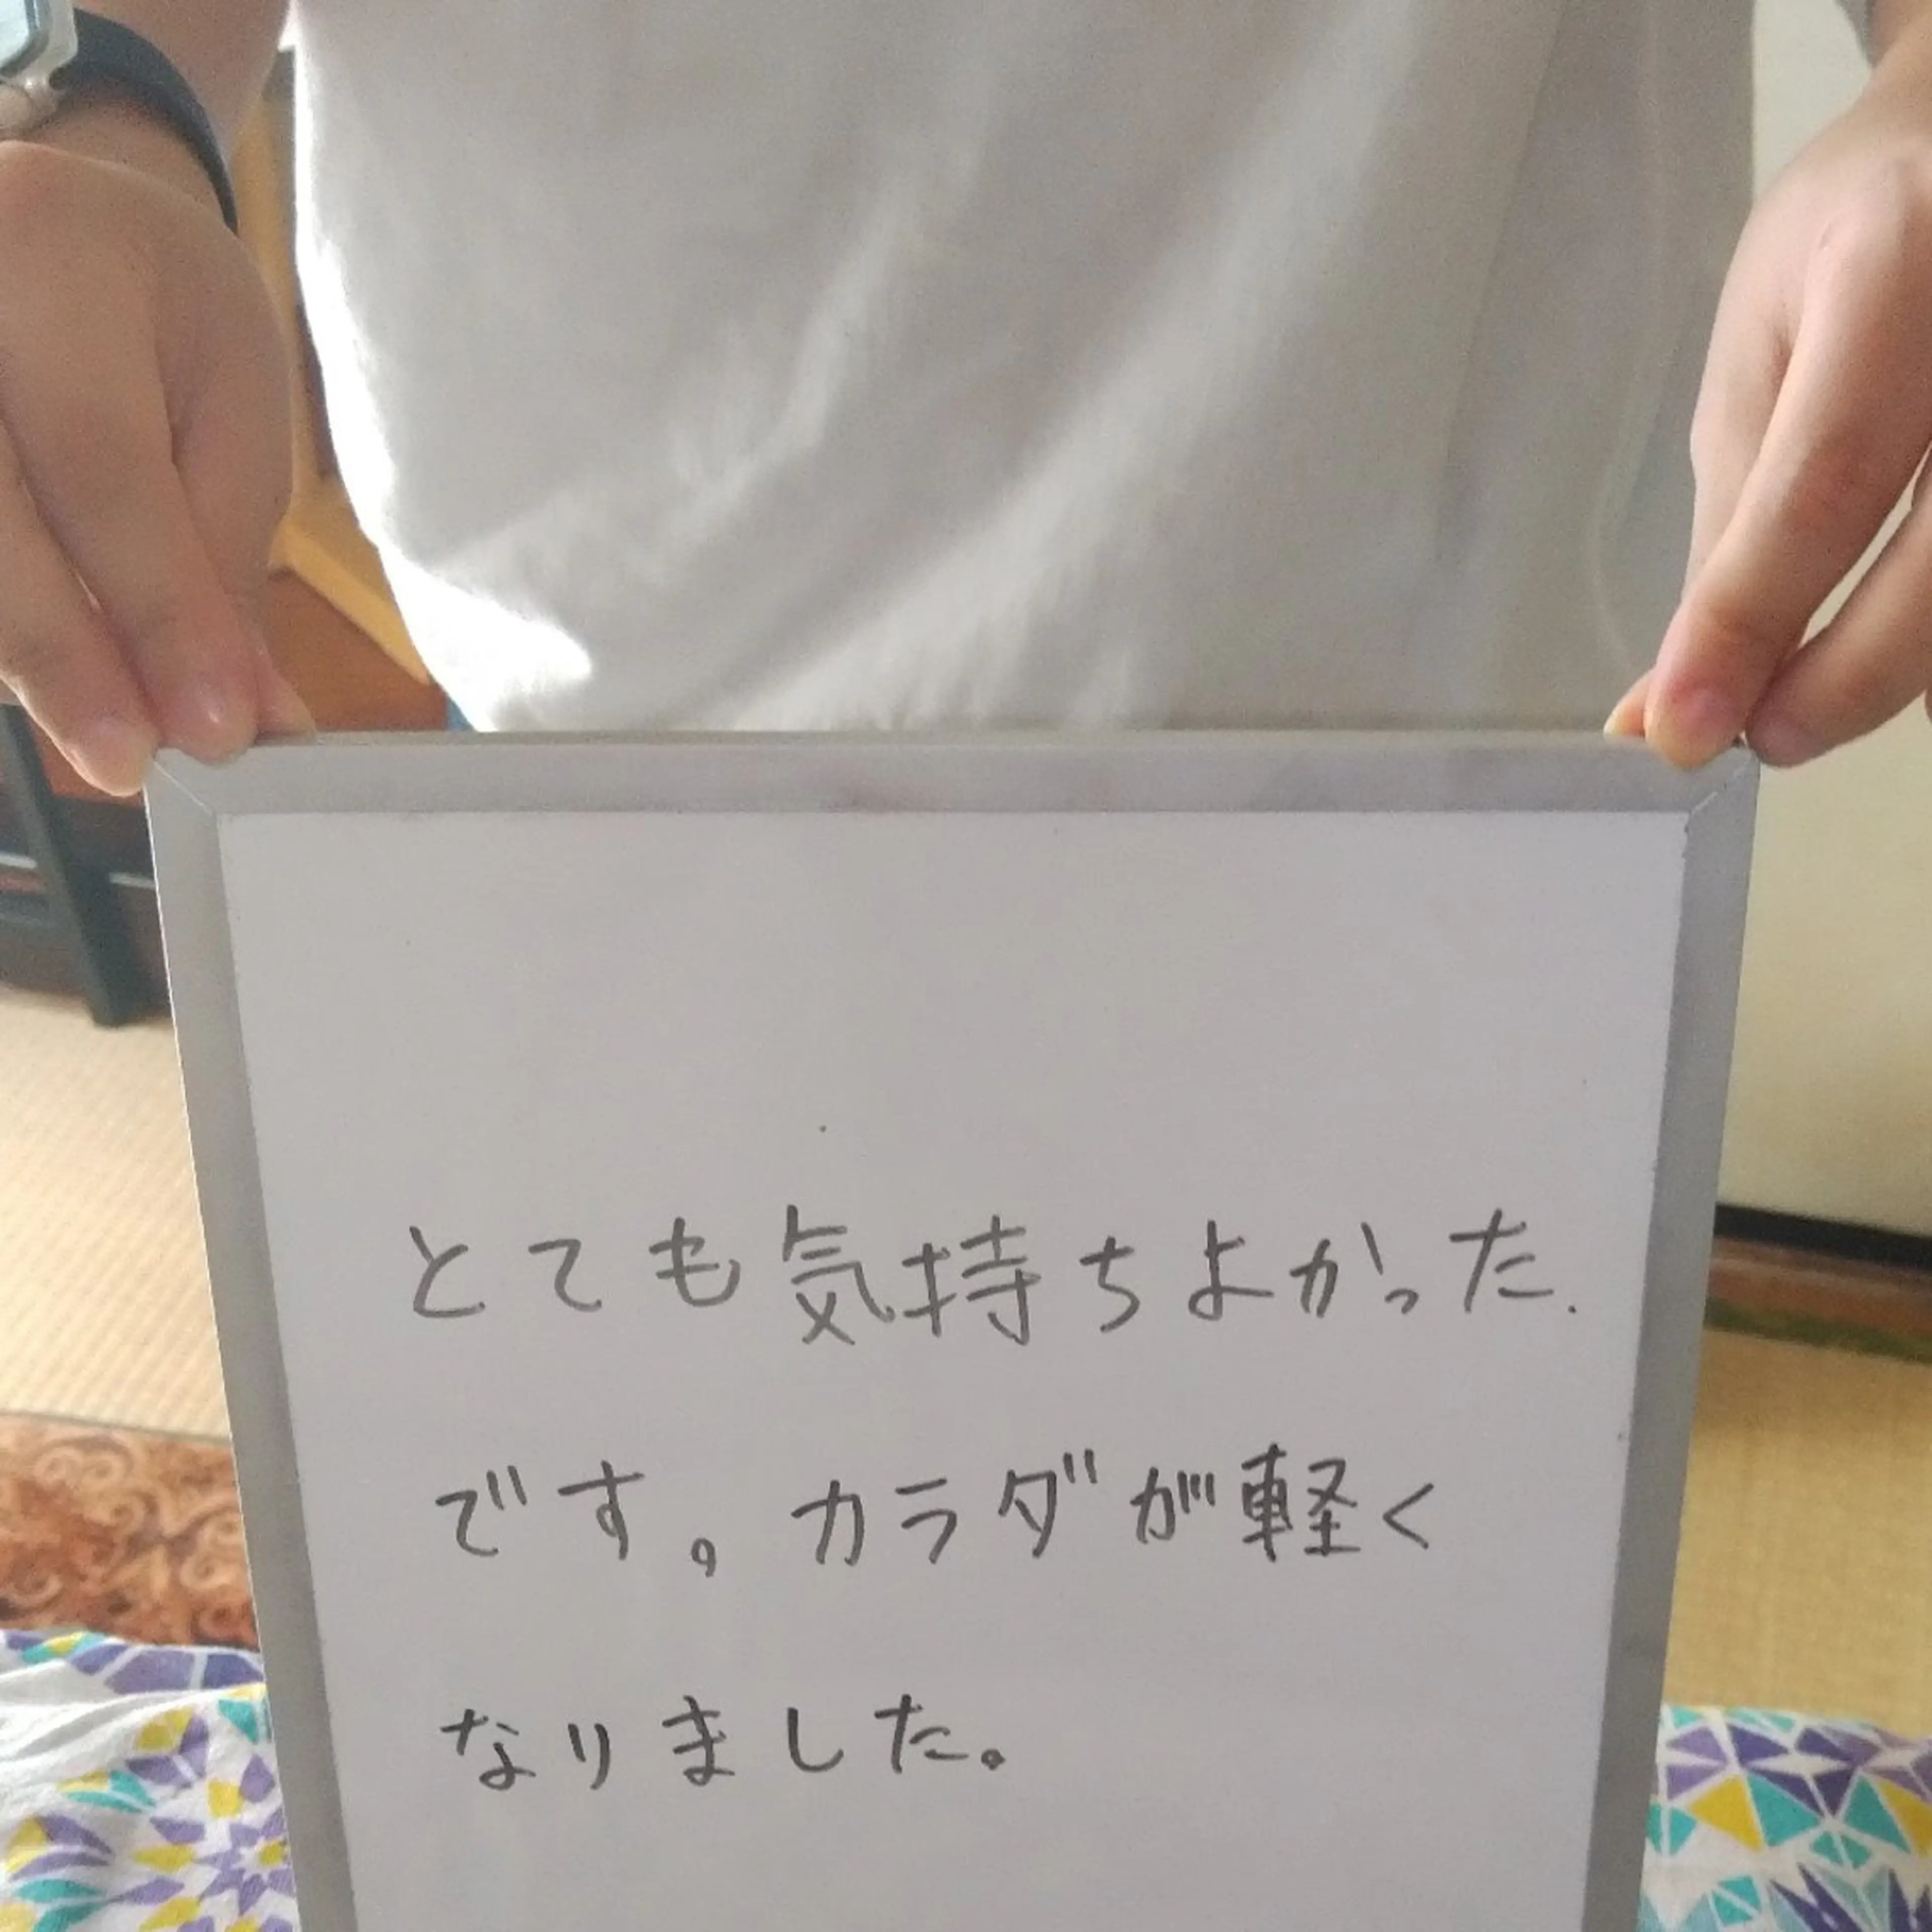 とても気持ちよかった
です。カラダが軽く
なりました。